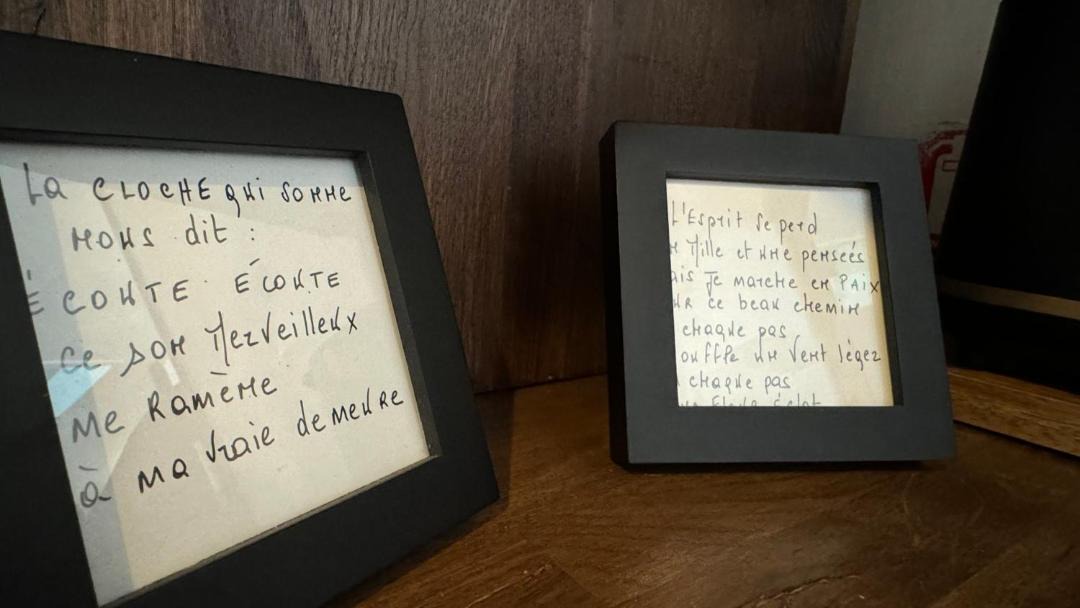 La CLOCHE qui sonne
nous dit :
ÉCOUTE ÉCOUTE
ce son Merveilleux
Me Ramène
à ma vraie demeure
L'Esprit se perd
Mille et une penseés
ais Je marche en PAix
ur ce beau chemin
chaque pas
ouffle un vent léger
chaque pas